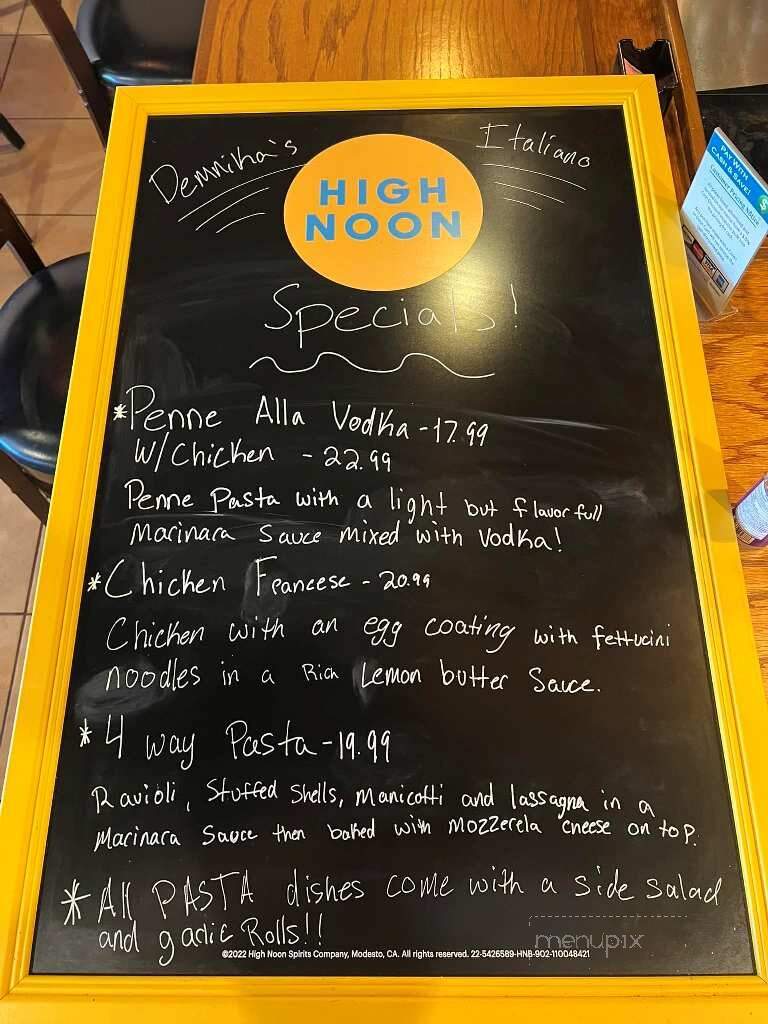 Demnika's
Italiano
HIGH
NOON
Specials!
*Penne Alla Vodka - 17.99
W/Chicken - 22.99
Penne Pasta with a light but flavorfull
Marinara Sauce mixed with Vodka!
*Chicken Francese - 20.99
Chicken with an egg coating with fettucini
noodles in a Rich Lemon butter Sauce.
*4 way Pasta - 19.99
Ravioli, Stuffed Shells, Manicotti and lassagna in a
Marinara Sauce then baked with Mozzerela cheese on top.
*All PASTA dishes come with a side salad
and garlic Rolls!!
©2022 High Noon Spirits Company, Modesto, CA. All rights reserved. 22-5426589-HNB-902-110048421
menupix
PAY WITH
CASH & SAVE!